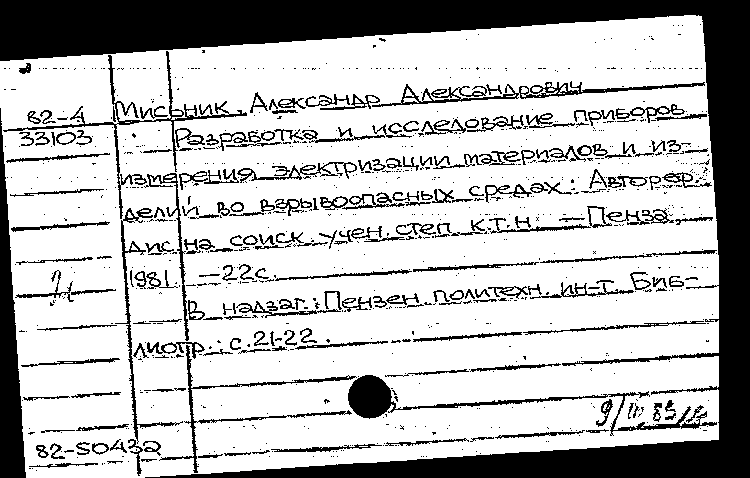 82-4
33103
Мисьник Александр Александрович
Разработка и исследование приборов
измерения электризации материалов и из-
делий во взрывоопасных средах: Автореф.
дис. на соиск. учен. степ. к.т.н. — Пенза,
1981. — 22с.
В надзаг.: Пензен. политехн. ин-т. Биб-
лиогр.: с. 21-22.
82-50432